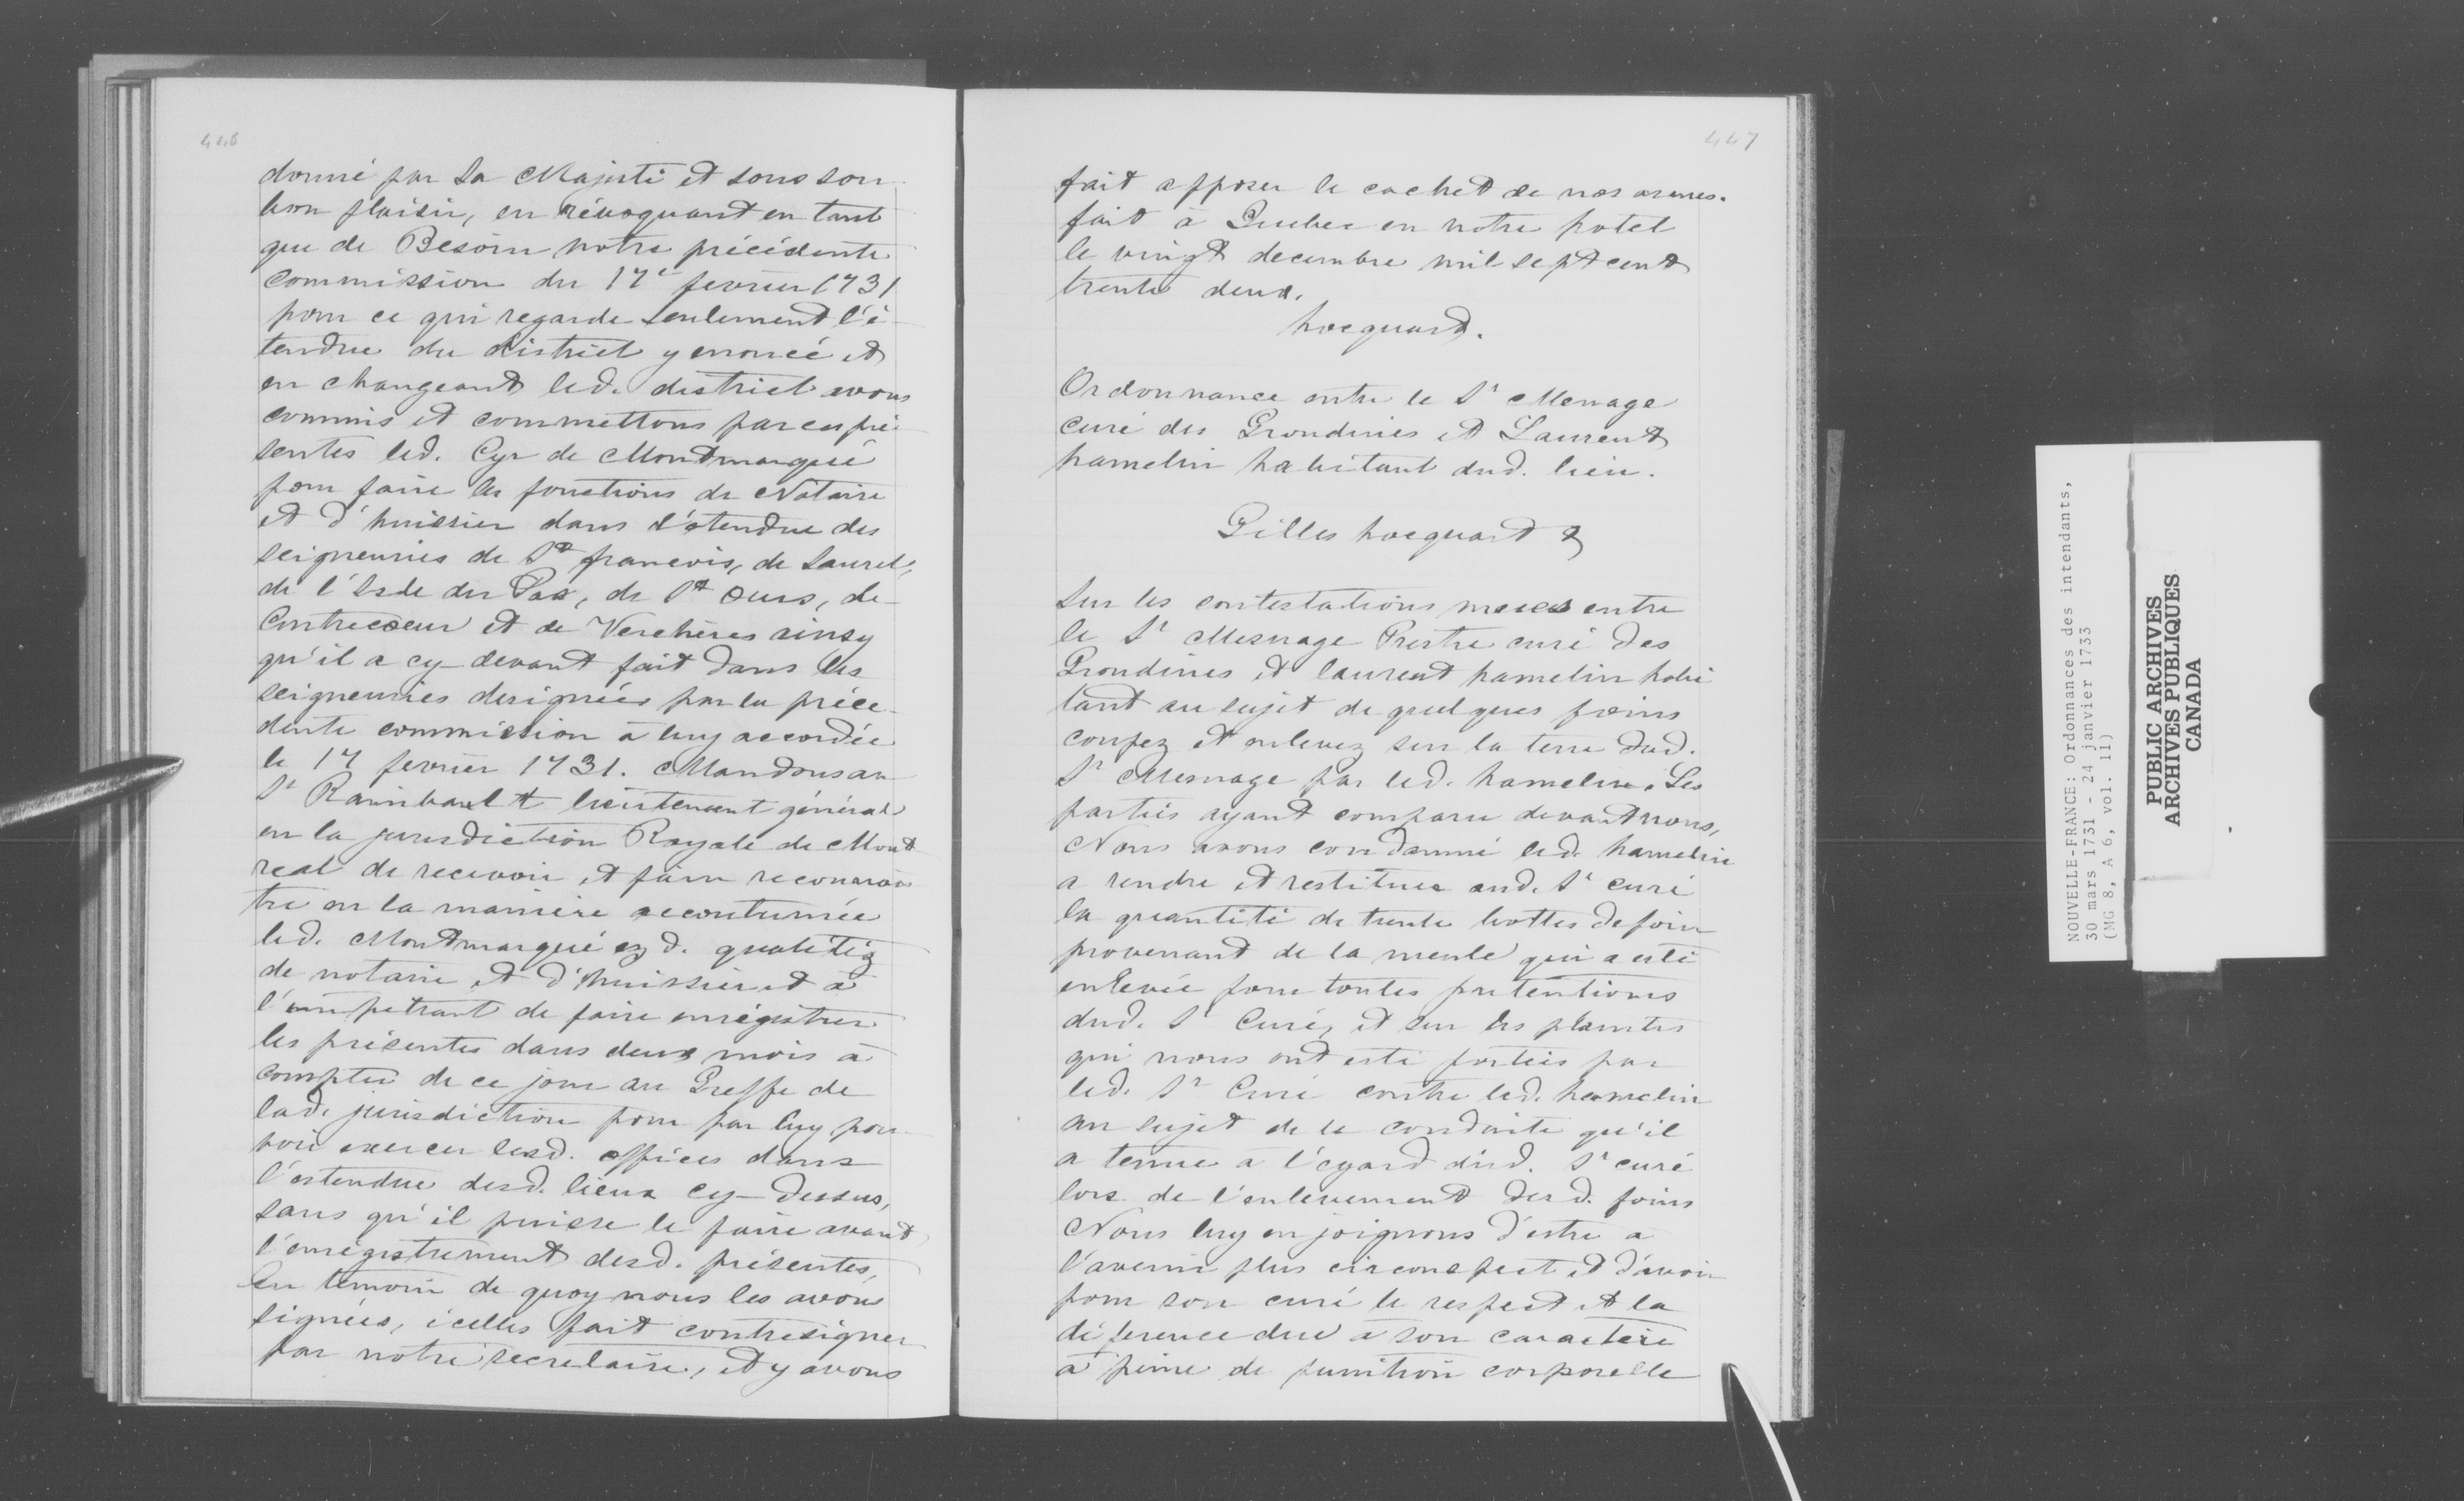 446
donné par Sa Majesté et sous son
bon plaisir, en révoquant en tant
que de Besoin notre précédente
commission du 17e fevrier 1731
pour ce qui regarde seulement l'é
tendue du district y enoncé et
en changeant led. district avons
commis et commettons par ces pré-
sentes led. Cyr de Montmarqué
pour faire les fonctions de Notaire
et d'huissier dans l'étendue des
seigneuries de St francois, de Saurel,
de l'Isle du Pas, de St Ours, de
Contrecoeur et de Verchères ainsy
qu'il a cy-devant fait dans les
seigneuries designées par la précé-
dente commission à luy accordée
le 17 fevrier 1731. Mandons au
Sr Raimbault lieutenant général
en la jurisdiction Royale de Mont
real de recevoir et faire reconnoi
tre en la manière accoutumée
led. Montmarqué ezd. qualitéz
de notaire et d'huissier et à
l'impetrant de faire enrégistrer
les présentes dans deux mois à
compter de ce jour au Greffe de
lad. jurisdiction pour par luy pou-
voir exercer lesd. offices dans
l'estendue desd. lieux cy-dessus,
sans qu'il puisse le faire avant
l'enrégistrement desd. présentes,
En temoin de quoy nous les avons
signées, icelles fait contresigner
par notre secretaire, et y avons
447
fait apposer le cachet de nos armes.
fait à Quebec en notre hotel
le vingt decembre mil sept cent
trente deux.
hocquart.
Ordonnance entre le Sr Menage
curé des Grondines et Laurent
hamelin habitant dud. lieu.
Gilles hocquart &
Sur les contestations mues entre
le Sr Mesnage Prestre curé des
Grondines et laurent hamelin habi
tant au sujet de quelques foins
coupez et enlevez sur la terre dud.
Sr Mesnage par led. hamelin. Les
parties ayant comparu devant nous,
Nous avons condamné led. hamelin
a rendre et restituer aud. Sr curé
la quantité de trente bottes de foin
provenant de la meule qui a esté
enlevée pour toutes pretentions
dud. Sr Curé, et sur les plaintes
qui nous ont esté portées par
led. Sr Curé contre led. hamelin
au sujet de la conduite qu'il
a tenue à l'égard dud. Sr curé
lors de l'enlevement desd. foins
Nous luy enjoignons d'estre a
l'avenir plus circonspect et d'avoir
pour son curé le respect et la
déference due à son caractère
à peine de punition corporelle
NOUVELLE-FRANCE: Ordonnances des intendants,
30 mars 1731 - 24 janvier 1733
(MG 8, A 6, vol. 11)
PUBLIC ARCHIVES
ARCHIVES PUBLIQUES
CANADA